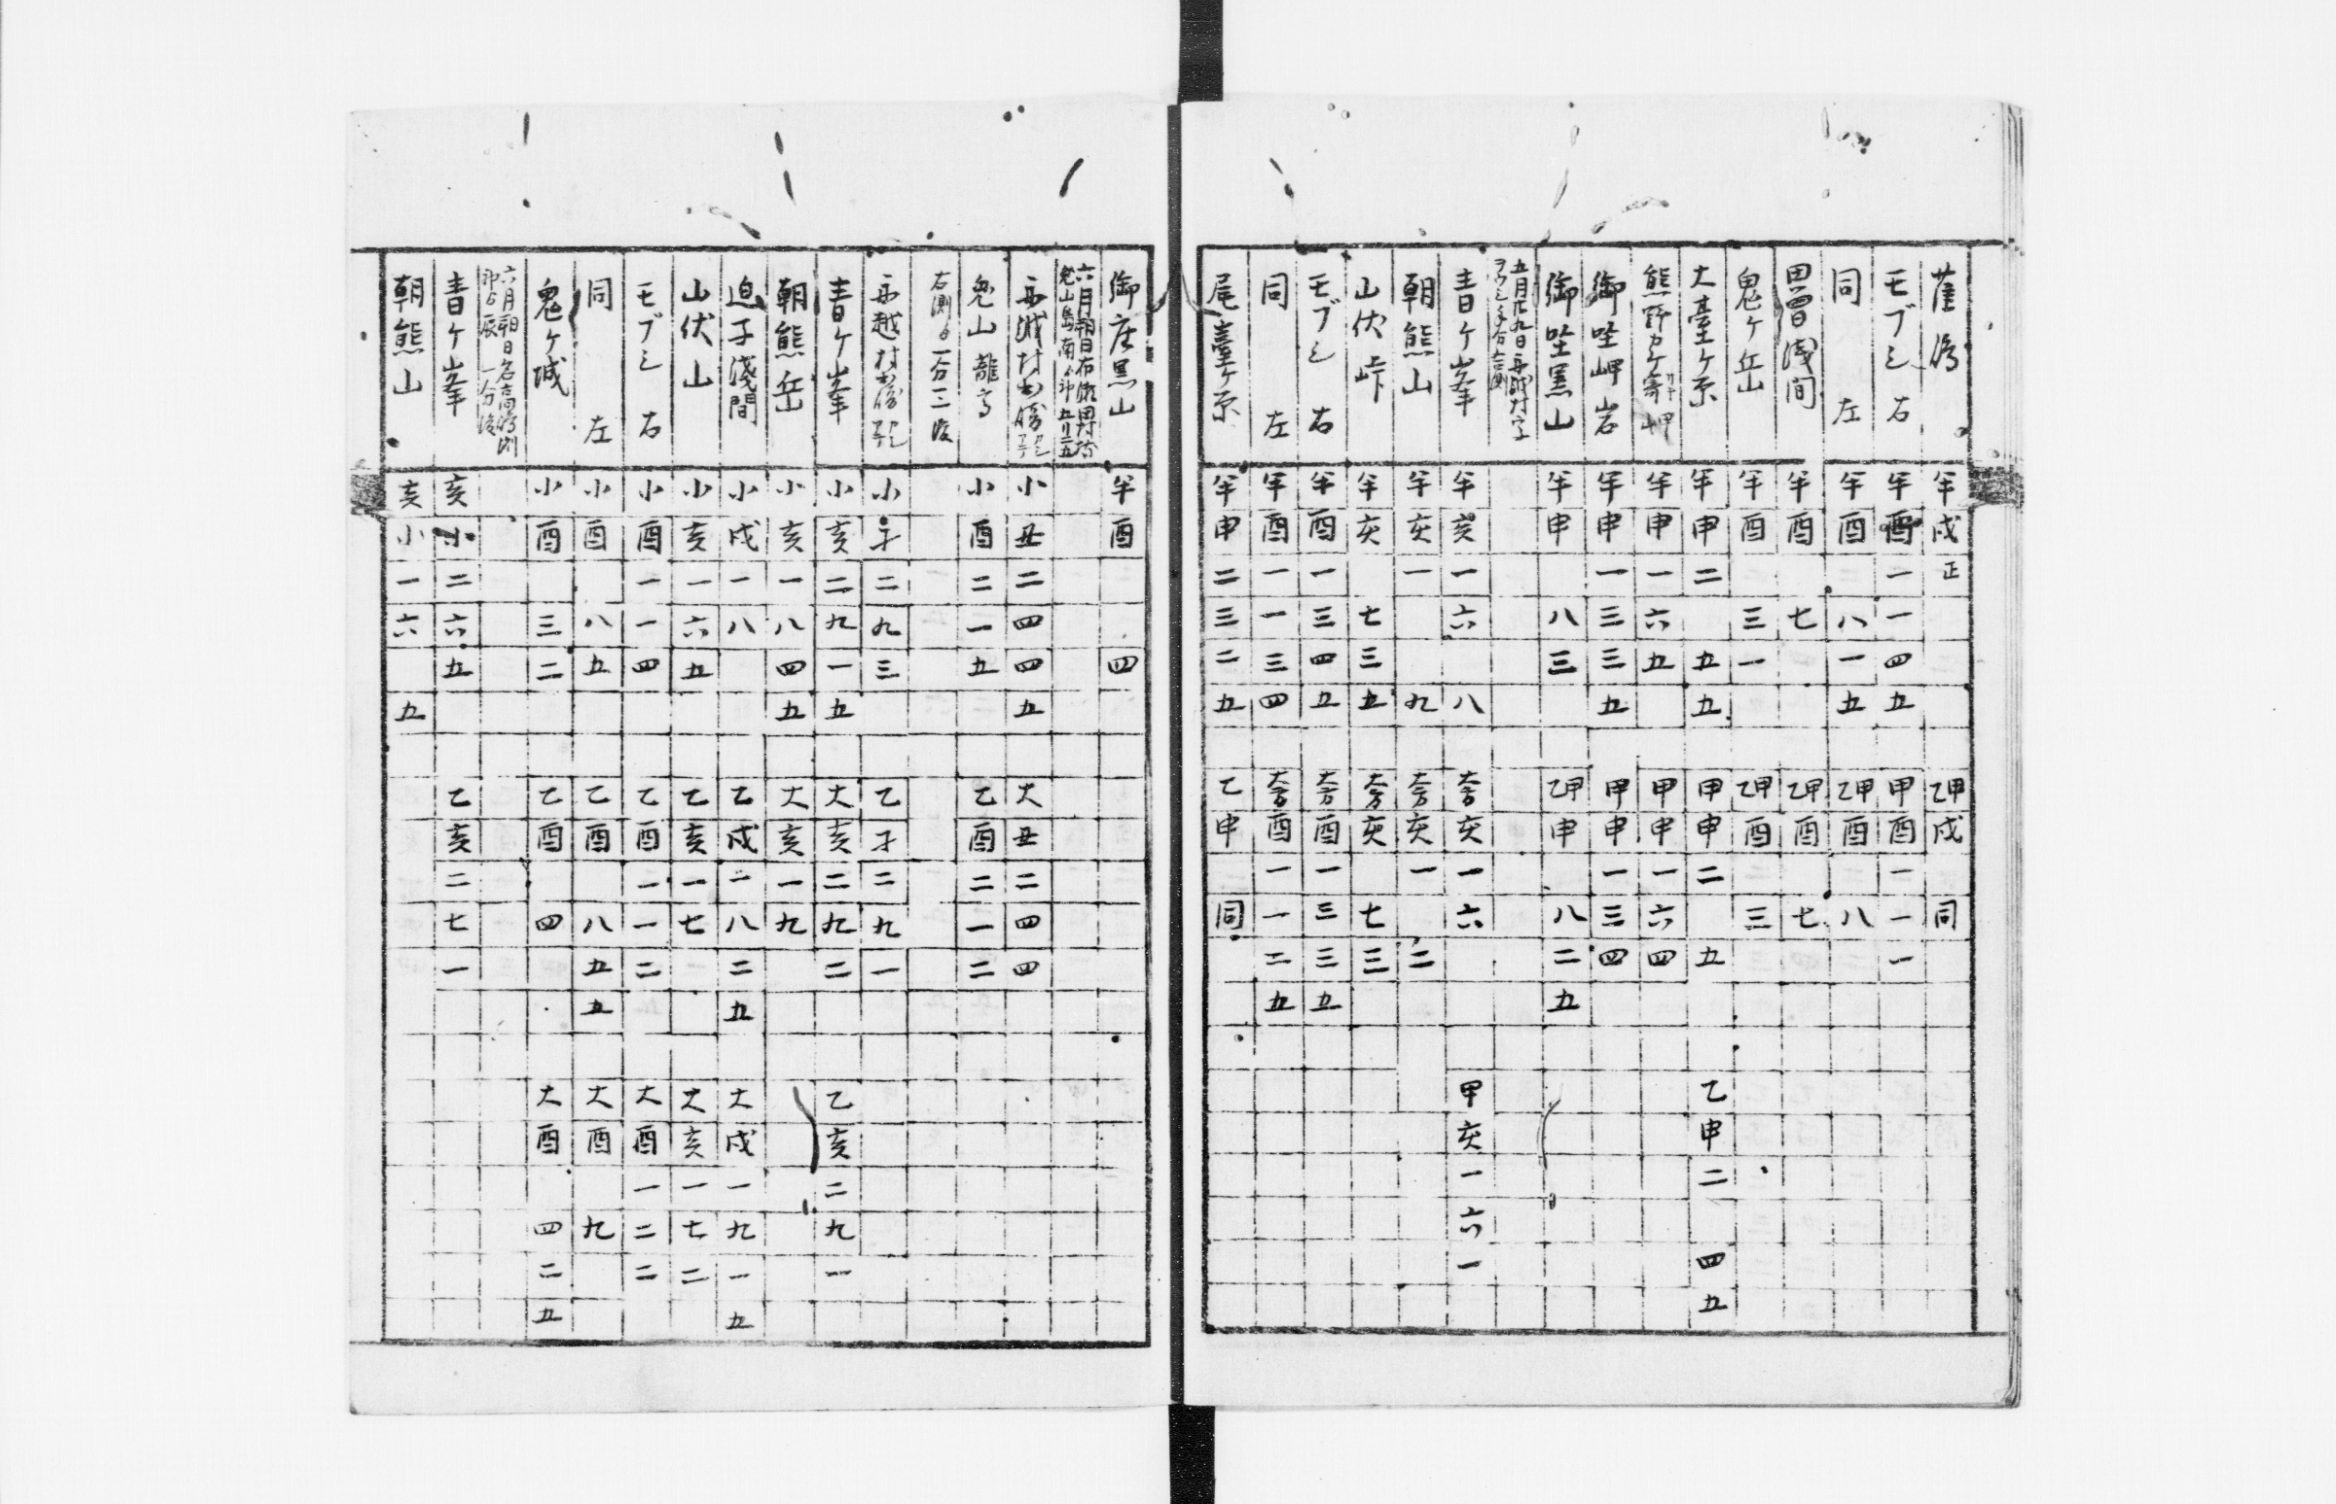 半戌正 乙甲戌 同
モブシ 右 半酉一一四五 甲酉一一一
同 左 半酉 八一五 乙甲酉 八
田曽浅间 半酉 七 乙甲酉 七
鬼ヶ岳 半酉 三一 乙甲酉 三
大臺ケ原 半申二 五五 甲申二 五 乙申二 四五
熊野 岬 半申一六五 甲申一六四
御埊岬岩 半申一三三五 甲申一三四
御埊黒山 半申 八三 乙甲申 八二五
五月廿九日
青ケ峯 半亥一六 八 大方亥一六 甲亥一六一
朝熊山 半亥一 九 大方亥一 二
山伏峠 半亥 七三五 大方亥 七三
モブシ 右 半酉一三四五 大方酉一三三五
同 左 半酉一一三四 大方酉一一二五
尾臺ケ原 半申二三二五 乙申 同
御座黒山 半酉 四
六月朔日
小丑二四四五 大丑二四四
小酉二一五 乙酉二一二
右測 一分二
小子二九三 乙子二九一
青ケ峯 小亥二九一五 大亥二九二 乙亥二九一
朝熊岳 小亥一八四五 大亥一九
迫子淺間 小戌一八 乙戌一八二五 大戌一九一五
山伏山 小亥一六五 乙亥一七一 大亥一七二
モブシ 右 小酉一一四 乙酉一一二 大酉一二二
同 左 小酉 八五 乙酉 八五五 大酉 九
鬼ヶ城 小酉 三二 乙酉 四 大酉 四二五
六月朔日
青ケ峯 亥小二六五 乙亥二七一
朝熊山 亥小一六 五